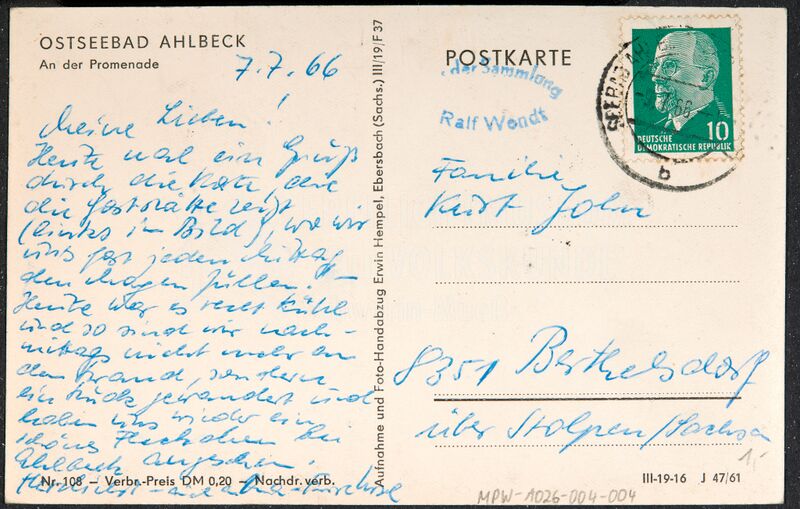 OSTSEEBAD AHLBECK
An der Promenade
7.7.66
Meine Lieben!
Heute mal ein Gruß
durch die Karte, die
die Gaststätte zeigt
(links im Bild), wo wir
uns fast jeden Mittag
den Magen füllen! –
Heute war es recht kühl
und so sind wir nach-
mittags nicht mehr an
den Strand, sondern
ein Stück gewandert und
haben uns wieder ein
schönes Fleckchen bei
Ahlbeck angesehen.
Herzlichst
Nr. 108 – Verbr.-Preis DM 0,20 – Nachdr. verb.
Aufnahme und Foto-Handabzug Erwin Hempel, Ebersbach (Sachs.) III/19/F 37
POSTKARTE
der Sammlung
Ralf Wendt
SEEBAD AH
66
b
10
DEUTSCHE
DEMOKRATISCHE REPUBLIK
Familie
Kurt John
8351 Berthelsdorf
über Stolpen/Sachsen
1,-
III-19-16 J 47/61
MPW-1026-004-004